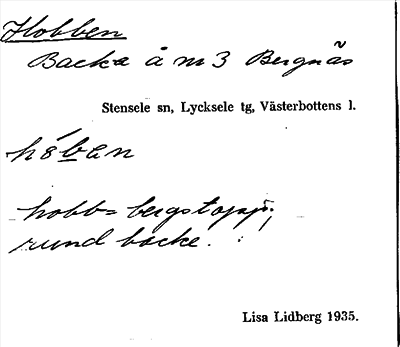 Hobben
Backe å m 3 Bergnäs
Stensele sn, Lycksele tg, Västerbottens l.
hobb= bergstopp;
rund backe.
Lisa Lidberg 1935.